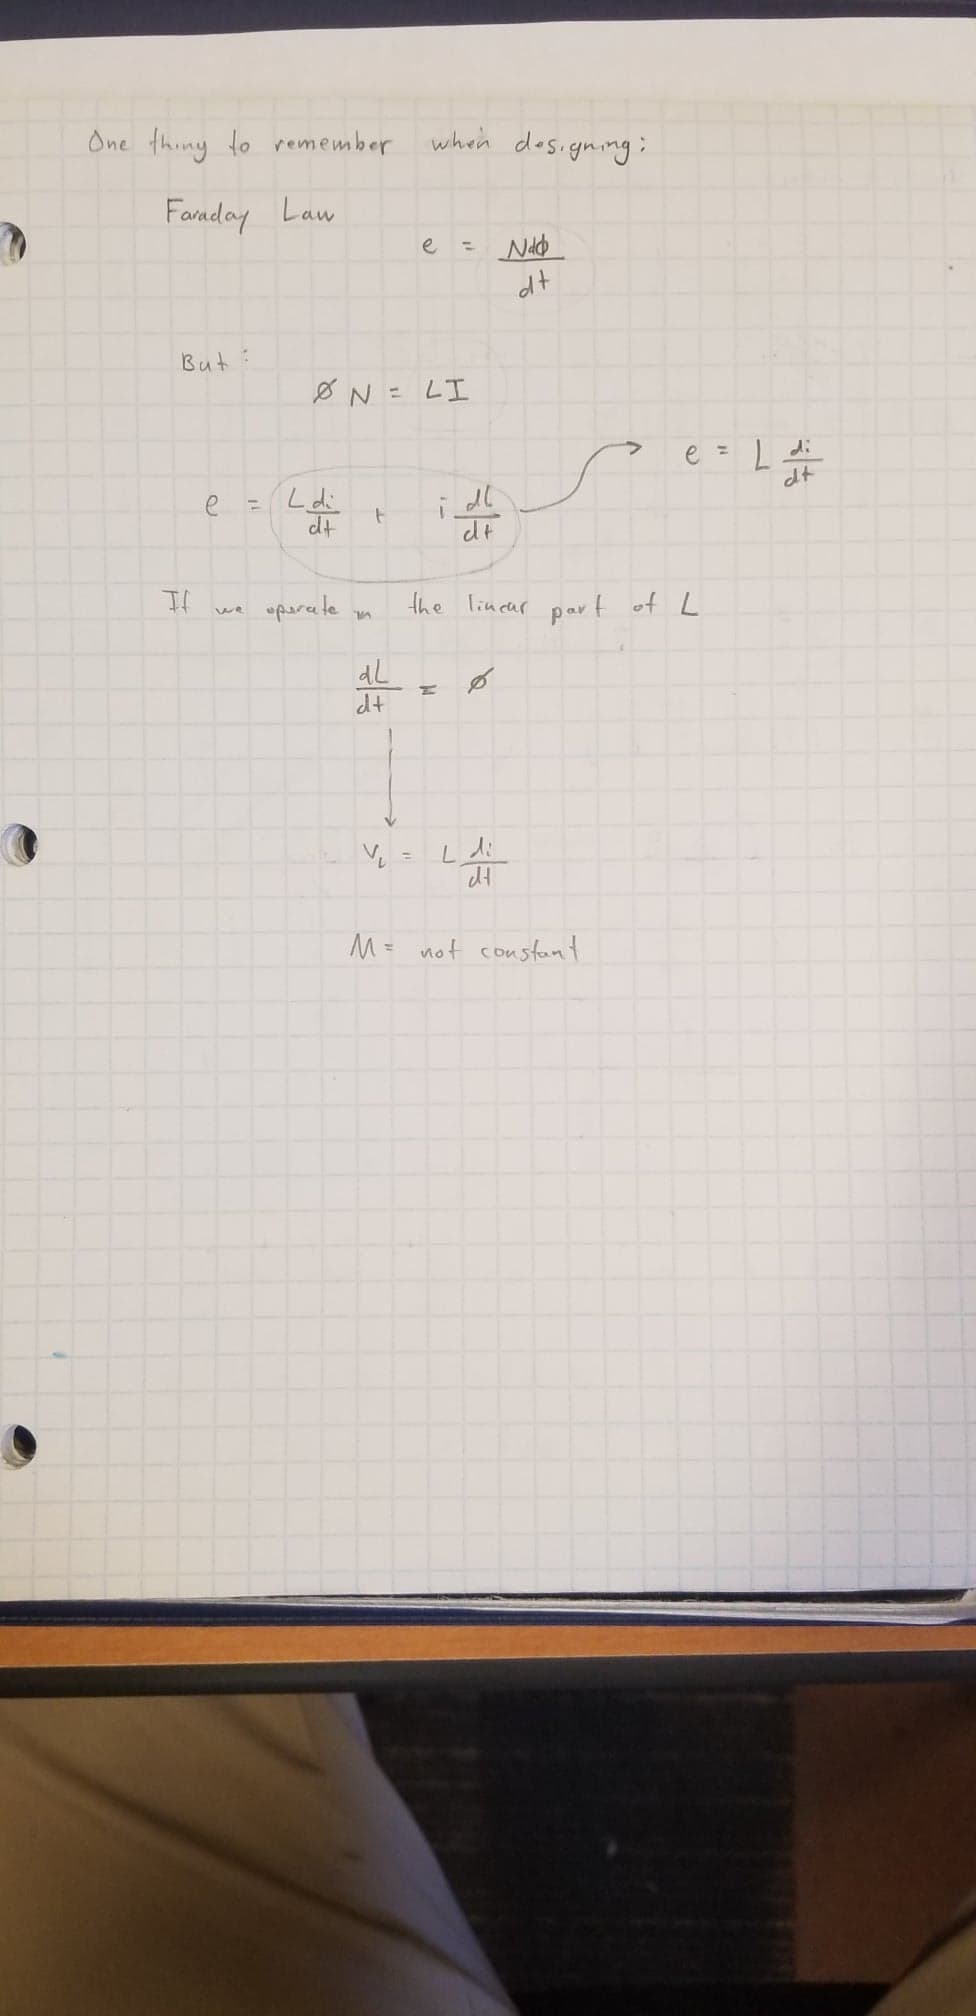 One thing to remember when designing:
Faraday Law
e = Ndϕ/dt
But:
Ø N = LI
e = L di/dt
e = L di/dt + i dL/dt
If we operate in the linear part of L
dL/dt = Ø
V_L = L di/dt
M = not constant